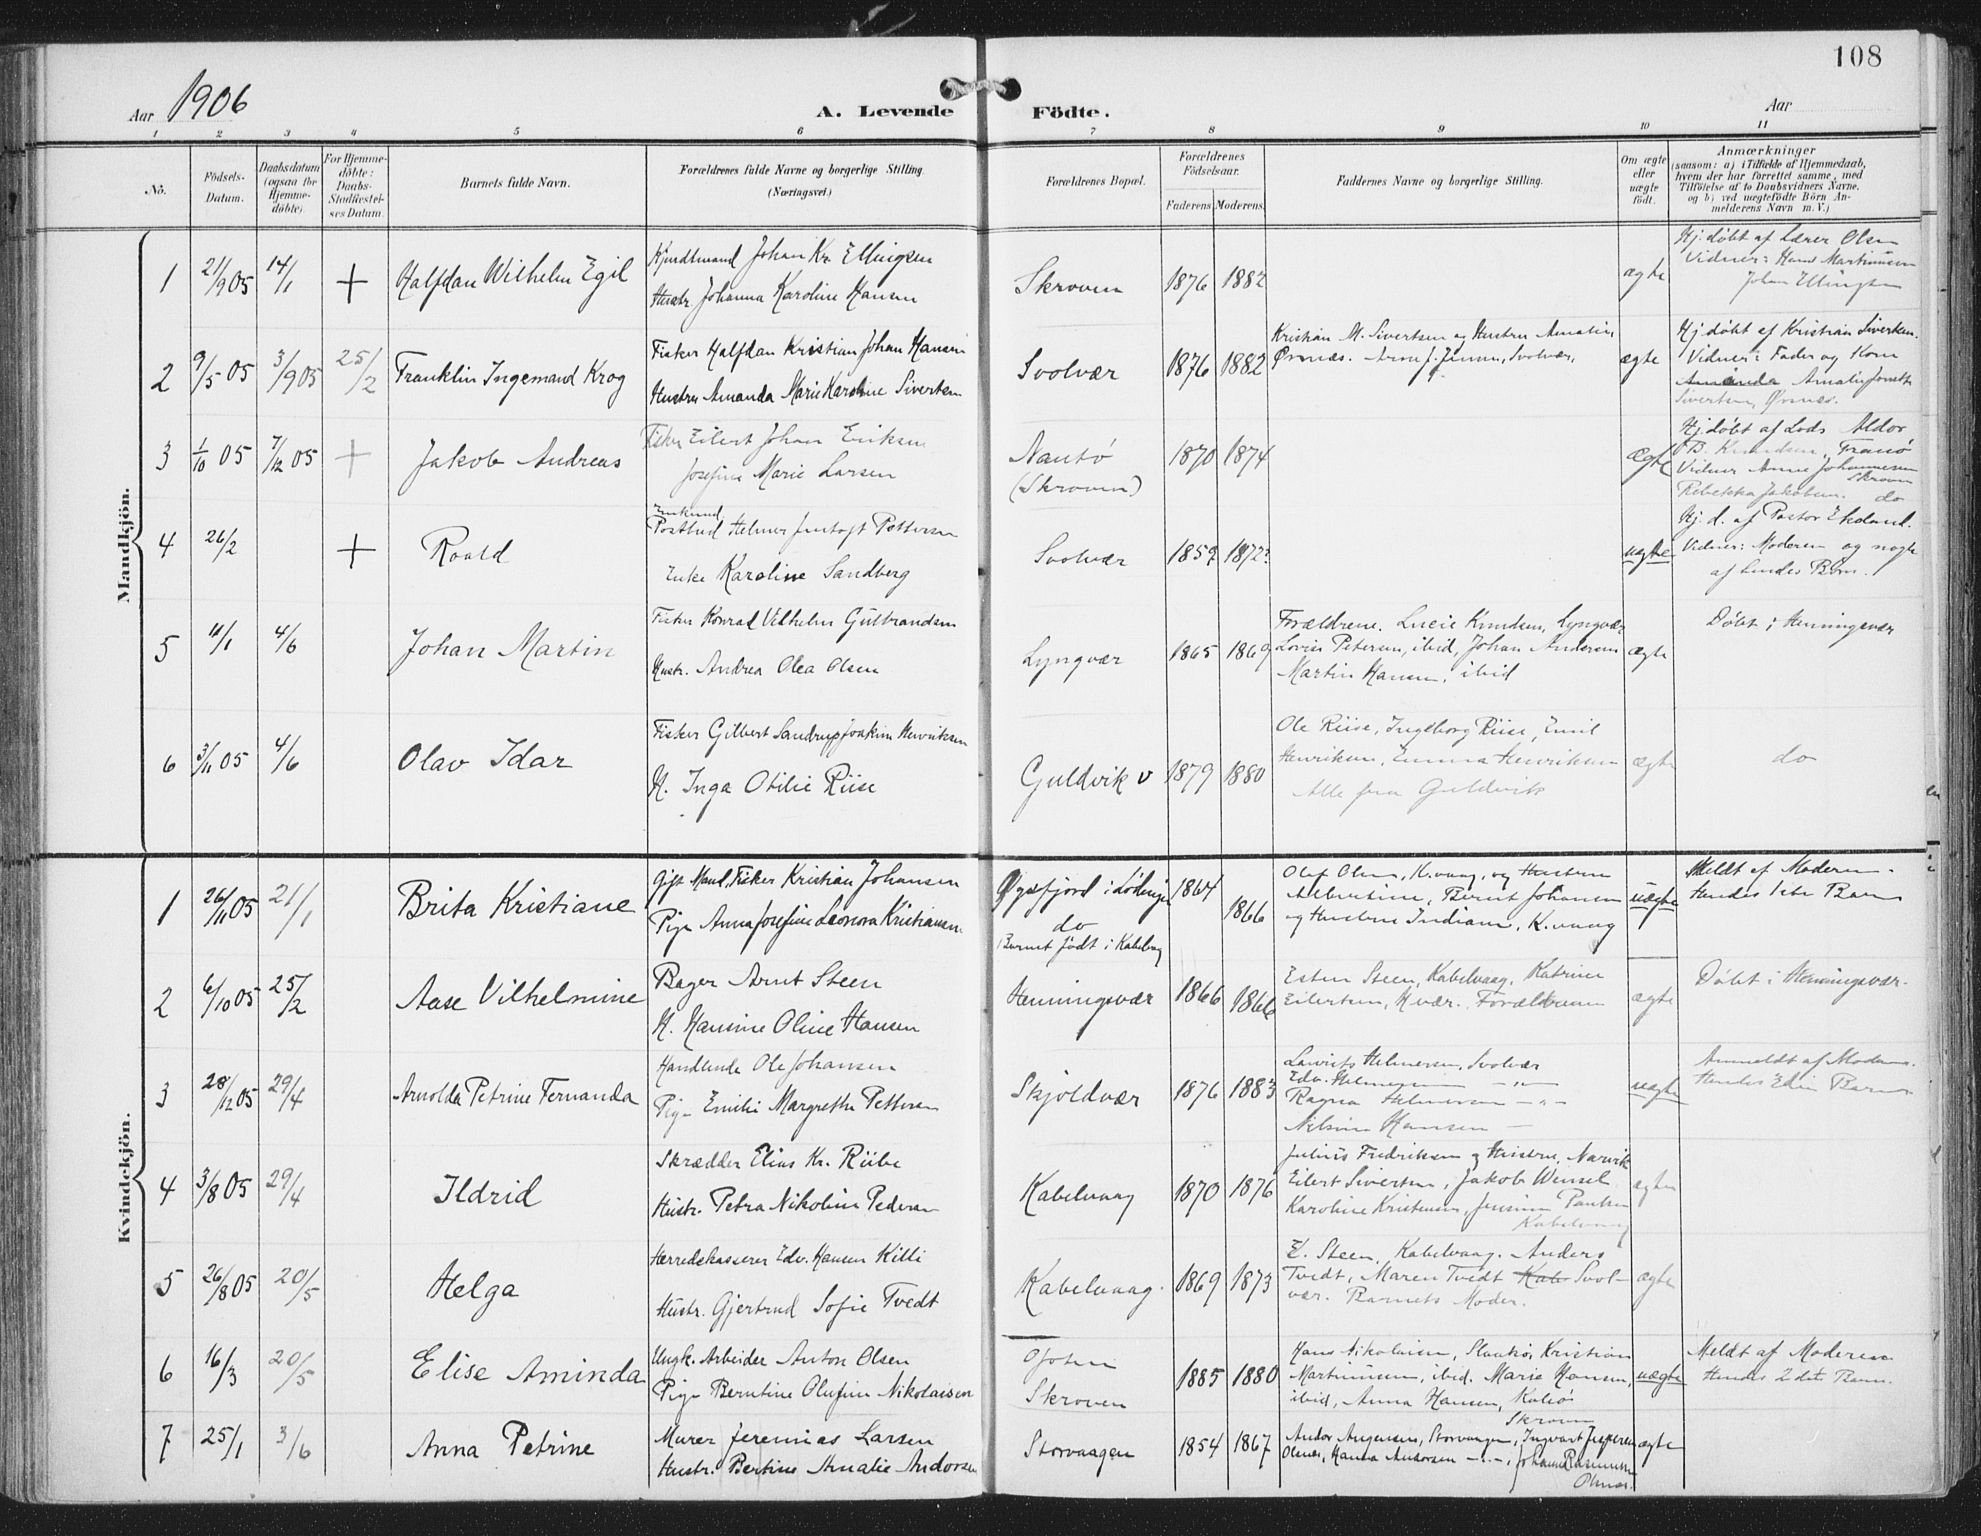 108
Aar 1906
A. Levende Födte.
Aar
1 2 3 4 5 6 7 8 9 10 11
No.
Födsels-Datum.
Daabsdatum (ogsaa for Hjemme-döbte).
For Hjemme-döbte: Daabs-Stadfæstel-ses Datum.
Barnets fulde Navn.
Forældrenes fulde Navne og borgerlige Stilling. (Næringsvei.)
Forældrenes Bopæl.
Forældrenes Födselsaar.
Faderens. Moderens.
Faddernes Navne og borgerlige Stilling.
Om ægte eller uægte födt.
Anmærkninger
(saasom: a) i Tilfælde af Hjemmedaab, hvem der har forrettet samme, med Tilföielse af to Daabsvidners Navne, og b) ved uægtefödte Börn An-melderens Navn m. V.)
Mandkjön.
1 21/9 05 14/1 + Halfdan Wilhelm Egil
Johan Kr. Ellingsen
Hustr. Johanna Karoline Hansen
Skroven 1876 1882 ægte
Hj. døbt af Lærer Olsen
Vidner: Hans Martinusen
Johan Ellingsen
2 9/5 05 3/9 05 25/2 Franklin Ingemand Krog
Fisker Halfdan Kristian Johan Hansen
Hustru Amanda Marie Karoline Sivertsen
Svolvær 1876 1882
Kristian M. Sivertsen og Hustru Amalie
Ørsnæs. Svolvær.
ægte
Hj. døbt af Kristian Sivertsen.
Vidner: Fader og Kone
Amanda Amalie
Sivertsen, Ørsnæs.
3 1/10 05 7/12 05 + Jakob Andreas
Fisker Eilert Johan Eriksen
Josefine Marie Larsen
(Skroven) 1870 1874 ægte
Hj. døbt af Lods Aldor
B. Knudsen, Tranø
Vidner Anne Johannesen
Skroven
Rebekka Jakobsen. do
4 26/2 + Roald
Postbud Helmer Pettersen
Enke Karoline Sandberg
Svolvær 1859 1872? uægte
Hj. d. af Pastor
Vidner: Moderen og nogle
af hendes Børn.
5 11/1 4/6 Johan Martin
Fisker Konrad Vilhelm Gulbrandsen
Hustr. Andrea Olea Olsen
Lyngvær 1865 1869
Forældrene. Lucie Knudsen, Lyngvær
Lovise Petersen, ibid, Johan Andersen
Martin Hansen, ibid
ægte
Døbt i Henningsvær
6 3/11 05 4/6 Olav Idar
Fisker Gilbert Sandrup Joakim Henriksen
H. Inga Otilie Riise
Guldvik v 1879 1880
Ole Riise, Ingeborg Riise, Emil
Henriksen, Emma Henriksen
Alle fra Guldvik
ægte
do
Kvindekjön.
1 26/11 05 21/1 Brita Kristiane
Gift Mand, Fisker Kristian Johansen
Pige Anna Josefine Leonora Kristiansen
Øgsfjord i Lødingen
do
Barnet født i Kabelvaag
1864 1866
Olaf Olsen, K.vaag, og Hustru
Albertine, Bernt Johansen
og Hustru Indiane, K.vaag
uægte
Meldt af Moderen.
Hendes 1ste Barn
2 6/10 05 25/2 Aase Vilhelmine
Bager Arnt Steen
H. Hansine Oline Hansen
Henningsvær 1866 1866
Ester Steen, Kabelvaag, Katrine
Eilertsen, H.vær. Forældrene
ægte
Døbt i Henningsvær.
3 28/12 05 29/4 Arnolda Petrine Fernanda
Handlende Ole Johansen
Pige Emilie Margrethe Pettersen
Skjoldvær 1876 1883
Lauritz Helmersen, Svolvær
Edv. Helmersen — " —
Ragna Helmersen — " —
Nilsine Hansen —
uægte
Anmeldt af Moderen.
Hendes Barn
4 3/8 05 29/4 Ildrid
Skrædder Elias Kr. Riibe
Hustr. Petra Nikoline Pedersen
Kabelvaag 1870 1876
Julius Fredriksen og Hustru, Narvik
Eilert Sivertsen, Jakob Wensel
Karoline Kristensen, Jensine Paulsen
Kabelvaag
ægte
5 26/8 05 20/5 Helga
Herredskasserer Edv. Hansen Killi
Hustr. Gjertrud Sofie Tvedt
Kabelvaag. 1869 1873
E. Steen, Kabelvaag. Anders
Tvedt, Maren Tvedt Kab Svol-
vær. Barnets Moder.
ægte
6 16/3 20/5 Elise Aminda
Ungk. Arbeider Anton Olsen
Pige Berntine Olufine Nikolaisen
Ofoten
Skroven
1885 1880
Hans Nikolaisen, Kristian
Martinusen, ibid. Marie Hansen,
ibid, Anna Hansen,
Skroven
uægte
Meldt af Moderen
Hendes 2det Barn.
7 25/1 3/6 Anna Petrine
Murer Jeremias Larsen
Hustr. Bertine Amalie Andorsen
Storvaagen 1854 1867
Andor Storvaagen, Ingvart Jespersen
Hanna Andorsen — " —, Johanna Rasmussen
ægte